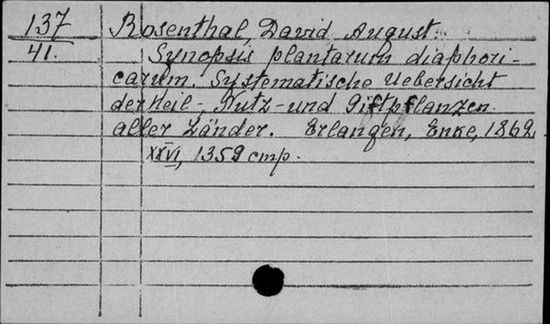 137 Rosenthal, David August.
41. Synopsis plantarum diaphori-
carum. Systematische Uebersicht
der Heil-, Nutz- und Giftpflanzen
aller Länder. Erlangen, Enke, 1862,
XXVI, 1359 cmp.